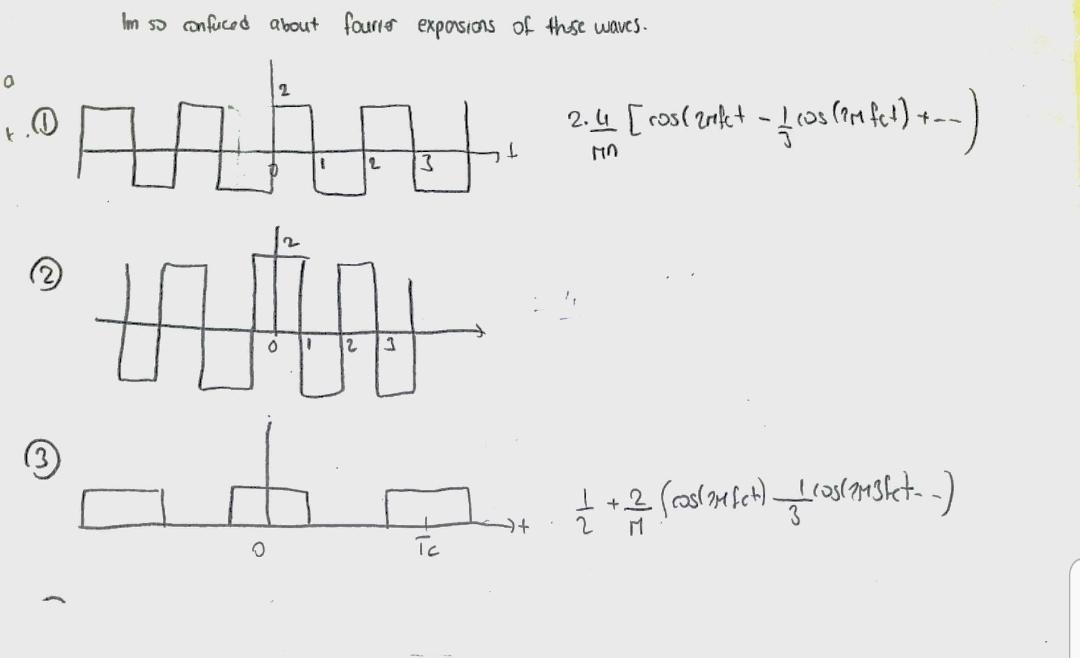 Im so confuced about fourier expansions of these waves.
a
t. ① 2 0 1 2 3 t
2. 4/πn [cos(2πfct - 1/3 cos(2πfct) + --)
② 2 0 1 2 3
③ 0 Tc t
1/2 + 2/π (cos(2πfct) - 1/3 cos(2π3fct- -)